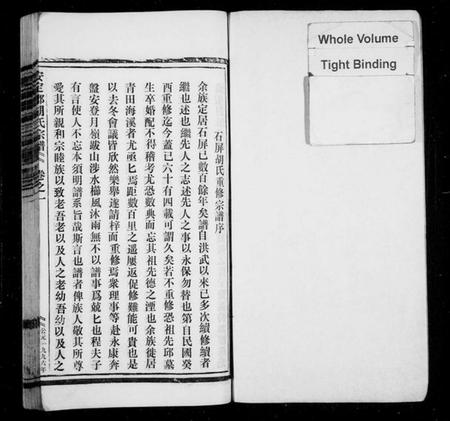 石屏胡氏重修宗譜序
余族定居石屏已數百餘年矣譜自洪武以來已多次續修續者
繼也述也繼先人之志述先人之事以永保勿替也第自民國癸
酉重修迄今蓋已六十有四載可謂久矣若不重修恐祖先邱墓
生卒婚配不得稽考尤恐數典而忘其祖先德之湮也余族徙居
青田海溪者尤亟亟焉距數百里之遥屢返促修難能可貴也是
以去冬會議皆欣然樂舉遂請梓而重修焉衆理事等赴永康奔
盤安登月嶺跋山涉水櫛風沐雨無不以譜事爲兢兢也程夫子
有言使人不忘本須明譜系旨哉斯言也譜者俾族人敬其所尊
愛其所親利宗睦族以致老吾老以及人之老幼吾幼以及人之
安定郡胡氏宗譜 卷之一
公元一九九六年
Whole Volume
Tight Binding